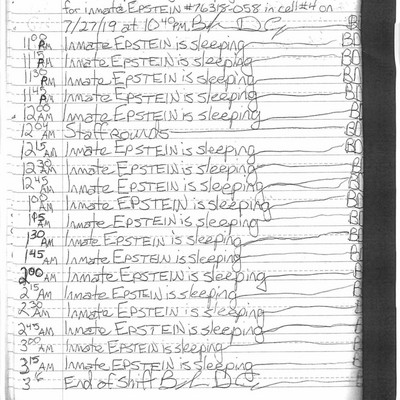 for inmate EPSTEIN #76318-058 in cell #4 on
7/27/19 at 10:40 PM.
11:00 PM Inmate EPSTEIN is sleeping
11:15 PM Inmate EPSTEIN is sleeping
11:30 PM Inmate EPSTEIN is sleeping
11:45 PM Inmate EPSTEIN is sleeping
12:00 AM Inmate EPSTEIN is sleeping
12:04 AM Staff rounds
12:15 AM Inmate EPSTEIN is sleeping
12:30 AM Inmate EPSTEIN is sleeping
12:45 AM Inmate EPSTEIN is sleeping
1:00 AM Inmate EPSTEIN is sleeping
1:15 AM Inmate EPSTEIN is sleeping
1:30 AM Inmate EPSTEIN is sleeping
1:45 AM Inmate EPSTEIN is sleeping
2:00 AM Inmate EPSTEIN is sleeping
2:15 AM Inmate EPSTEIN is sleeping
2:30 AM Inmate EPSTEIN is sleeping
2:45 AM Inmate EPSTEIN is sleeping
3:00 AM Inmate EPSTEIN is sleeping
3:15 AM Inmate EPSTEIN is sleeping
End of Shift